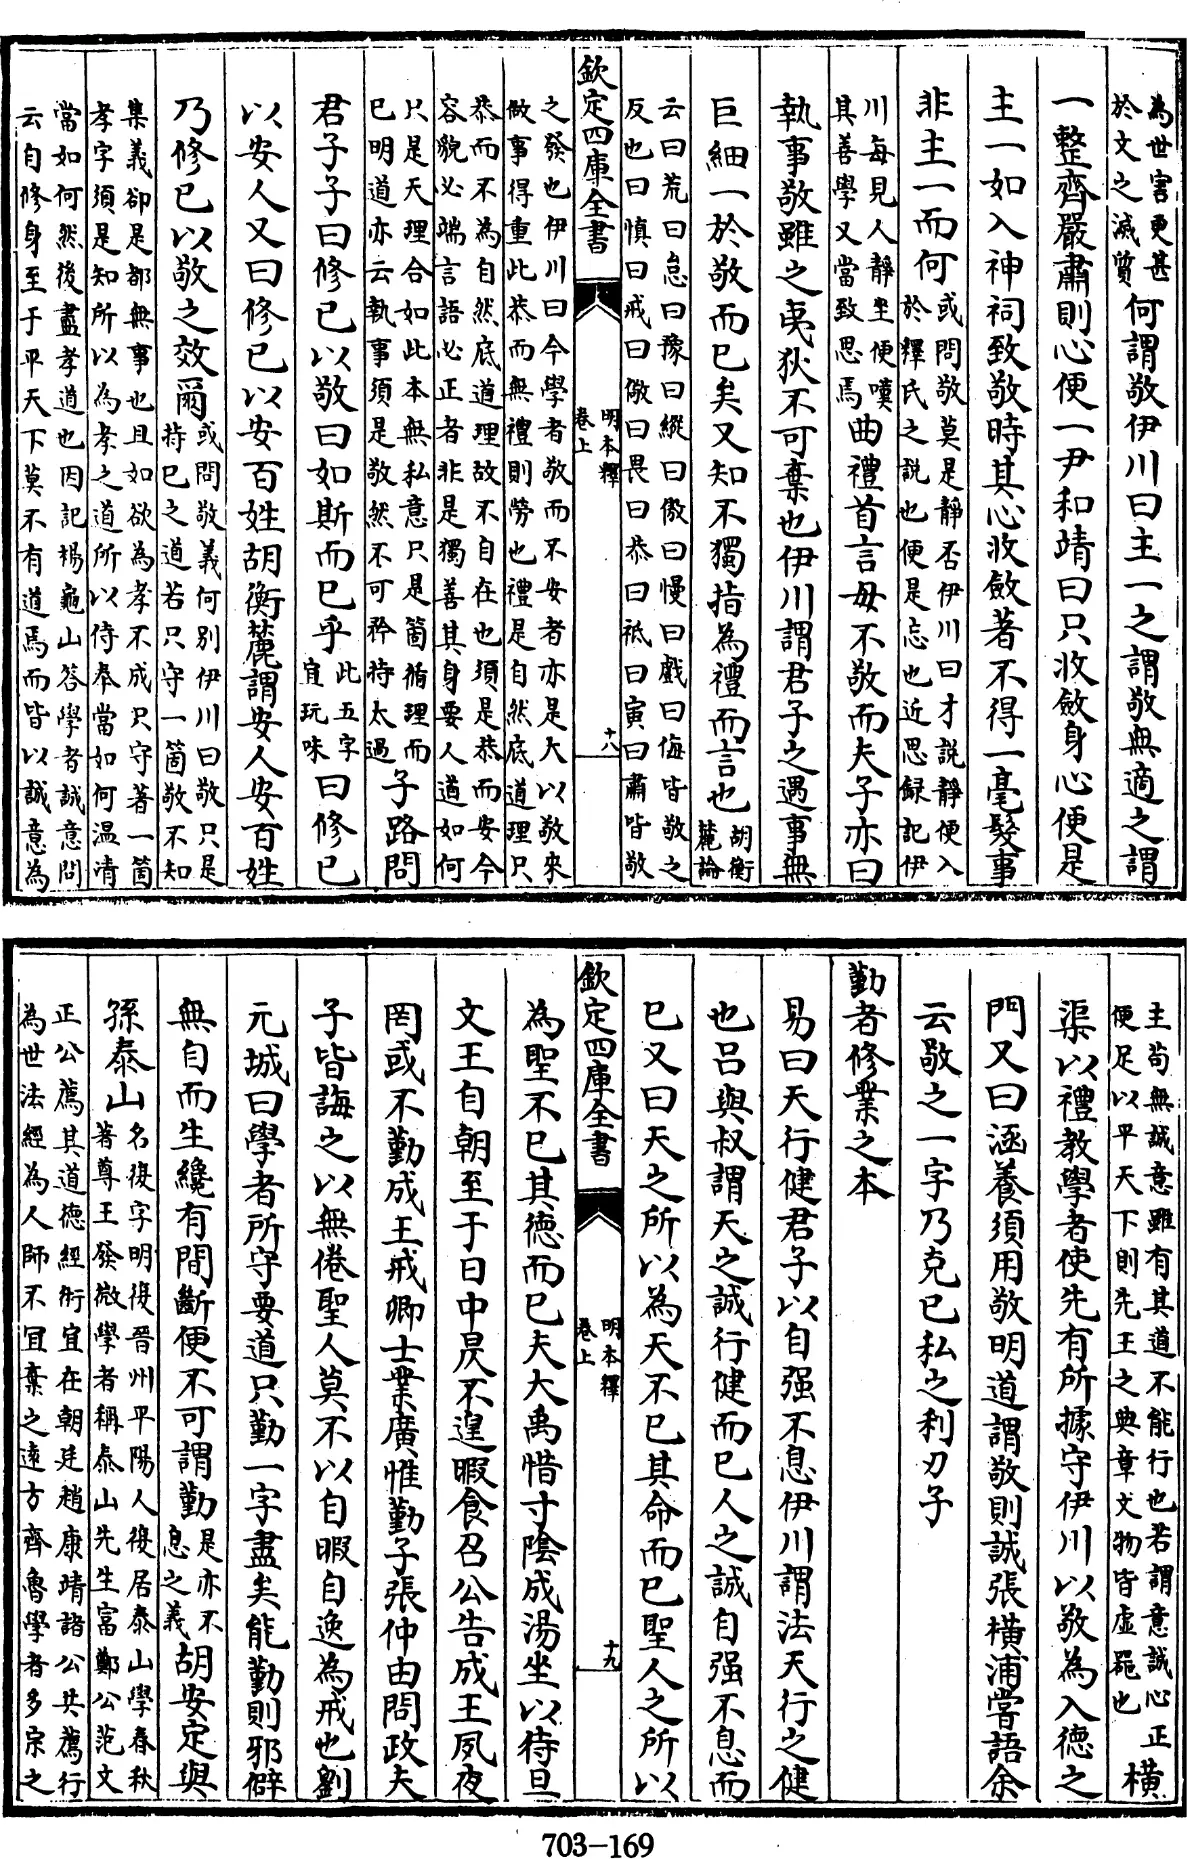 為世害更甚
於文之滅質
何謂敬伊川曰主一之謂敬無適之謂
一整齊嚴肅則心便一尹和靖曰只收斂身心便是
主一如入神祠致敬時其心收斂著不得一毫髮事
非主一而何
或問敬莫是靜否伊川曰才説靜便入
於釋氏之説也便是忘也近思録記伊
川每見人靜坐便嘆
其善學又當致思焉
曲禮首言毋不敬而夫子亦曰
執事敬雖之夷狄不可棄也伊川謂君子之遇事無
巨細一於敬而已矣又知不獨指為禮而言也
胡衡
麓論
云曰荒曰怠曰豫曰縱曰傲曰慢曰戲曰侮皆敬之
反也曰慎曰戒曰儆曰畏曰恭曰祗曰寅曰肅皆敬
欽定四庫全書
明本釋
卷上
十八
之發也伊川曰今學者敬而不安者亦是大以敬來
做事得重此恭而無禮則勞也禮是自然底道理只
恭而不為自然底道理故不自在也須是恭而安今
容貌必端言語必正者非是獨善其身要人道如何
只是天理合如此本無私意只是箇循理而
已明道亦云執事須是敬然不可矜持太過
子路問
君子子曰修已以敬曰如斯而已乎
此五字
宜玩味
曰修已
以安人又曰修已以安百姓胡衡麓謂安人安百姓
乃修已以敬之效爾
或問敬義何别伊川曰敬只是
持已之道若只守一箇敬不知
集義卻是都無事也且如欲為孝不成只守著一箇
孝字須是知所以為孝之道所以侍奉當如何温凊
當如何然後盡孝道也因記楊龜山答學者誠意問
云自修身至于平天下莫不有道焉而皆以誠意為
主苟無誠意雖有其道不能行也若謂意誠心正
便足以平天下則先王之典章文物皆虛器也
橫
渠以禮教學者使先有所據守伊川以敬為入德之
門又曰涵養須用敬明道謂敬則誠張橫浦嘗語余
云敬之一字乃克已私之利刃子
勤者修業之本
易曰天行健君子以自强不息伊川謂法天行之健
也吕與叔謂天之誠行健而已人之誠自强不息而
已又曰天之所以為天不已其命而已聖人之所以
欽定四庫全書
明本釋
卷上
十九
為聖不已其德而已夫大禹惜寸陰成湯坐以待旦
文王自朝至于日中昃不遑暇食召公告成王夙夜
罔或不勤成王戒卿士業廣惟勤子張仲由問政夫
子皆誨之以無倦聖人莫不以自暇自逸為戒也劉
元城曰學者所守要道只勤一字盡矣能勤則邪僻
無自而生纔有間斷便不可謂勤
是亦不
息之義
胡安定與
孫泰山
名復字明復晉州平陽人復居泰山學春秋
著尊王發微學者稱泰山先生富鄭公范文
正公薦其道德經術宜在朝廷趙康靖諸公共薦行
為世法經為人師不宜棄之遠方齊魯學者多宗之
703-169